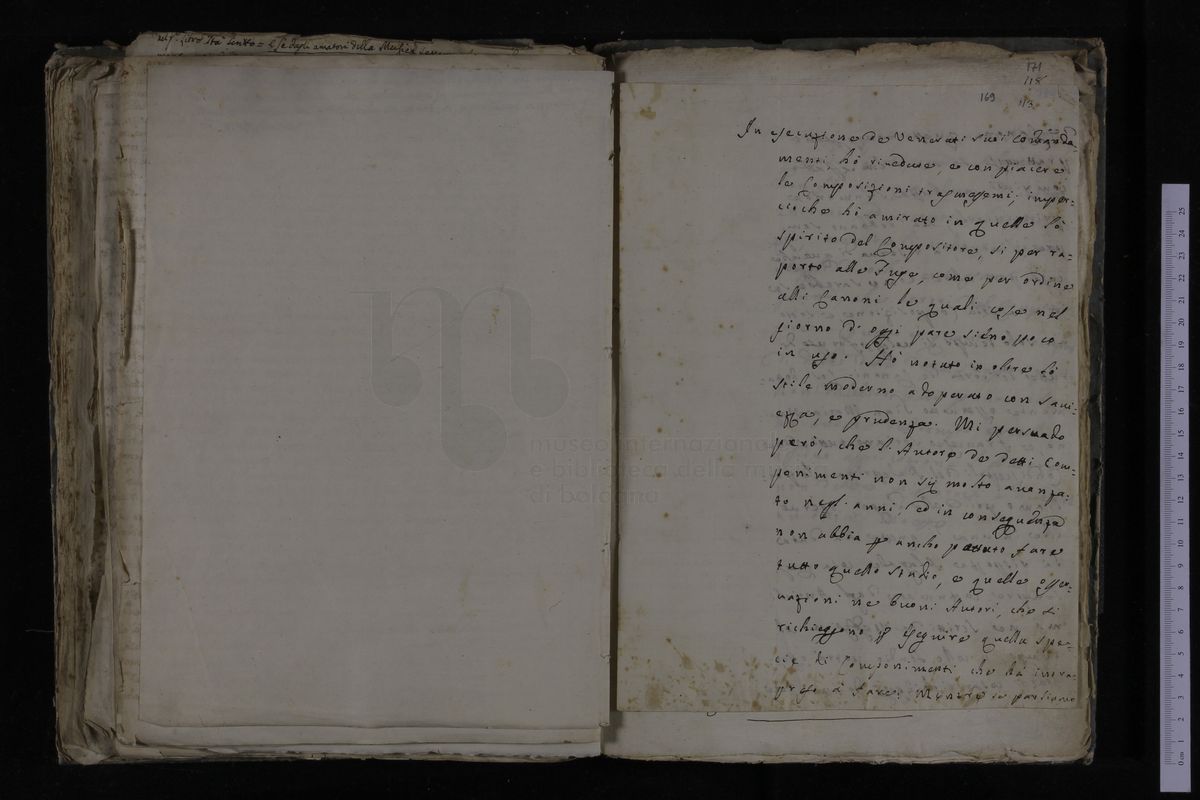 libro stà = e se dagli amatori della Musica
171
118
169
113
In esecuzione de Venerati suoi comanda
menti, hò riuedute, e con piacere
le Composizioni trasmessemi; imper-
cioche hò amirato in quelle lò
spirito del Compositore, si per ra-
porto alle Fuge, come per ordine
alli Canoni le quali cose nel
giorno d'oggi pare sieno poco
in uso. Hò notato in oltre lò
stile moderno adoperato con saui-
ezza, e prudenza. Mi persuado
però, che l'Autore de detti Com-
ponimenti non sij molto auanza-
to negl'anni, ed in conseguenza
non abbia p ancho potuto fare
tutto quello studio, e quelle osser-
uazioni ne buoni Autori, che si
richieggono p eseguire quella spe-
cie di Componimenti che hà intra-
preso à fare: Mentre se parliamo
museo internazionale
e biblioteca della mu
di bologna